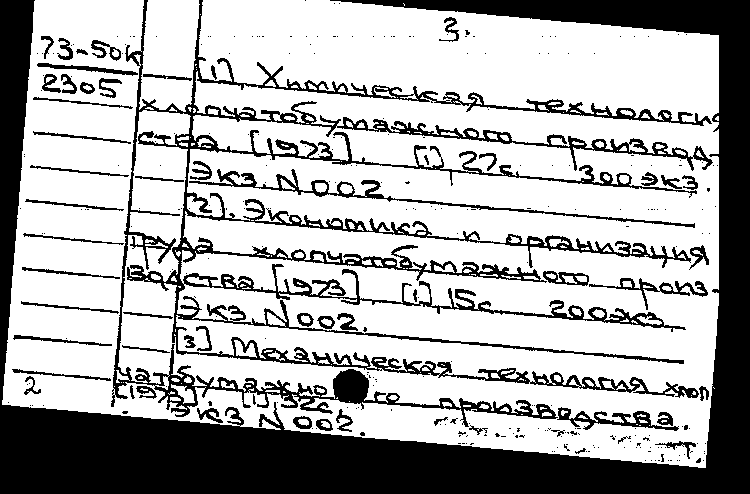 3.
73-50к
2305
[1]. Химическая технология
хлопчатобумажного производ-
ства. [1973]. [1], 27с. 300 экз.
Экз. N 002.
[2]. Экономика и организация
труда хлопчатобумажного произ-
водства. [1973]. [1], 15с. 200 экз.
Экз. N 002.
[3]. Механическая технология хлоп
чатобумажно го производства.
[1973]. [1], 32с.
Экз N 002.
2